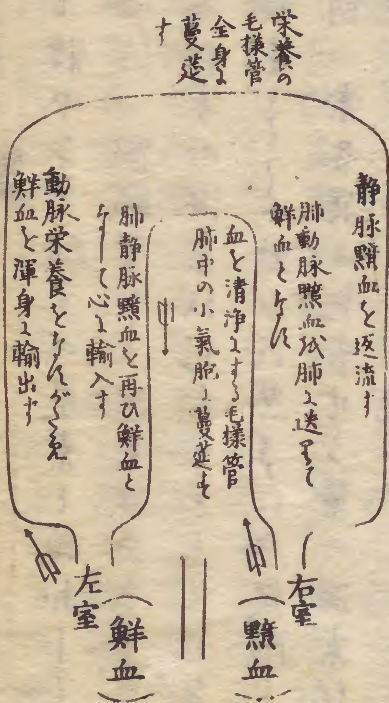 栄養の
毛様管
全身に
蔓延
す
静脉黯血を返流す
肺動脉黯血を肺に送りて
鮮血となす
血を清浄にする毛様管
肺中の小氣胞に蔓延す
肺静脉黯血を再ひ鮮血と
なして心に輸入す
動脉栄養をなすが為
鮮血を渾身に輸出す
右室
黯血
左室
鮮血